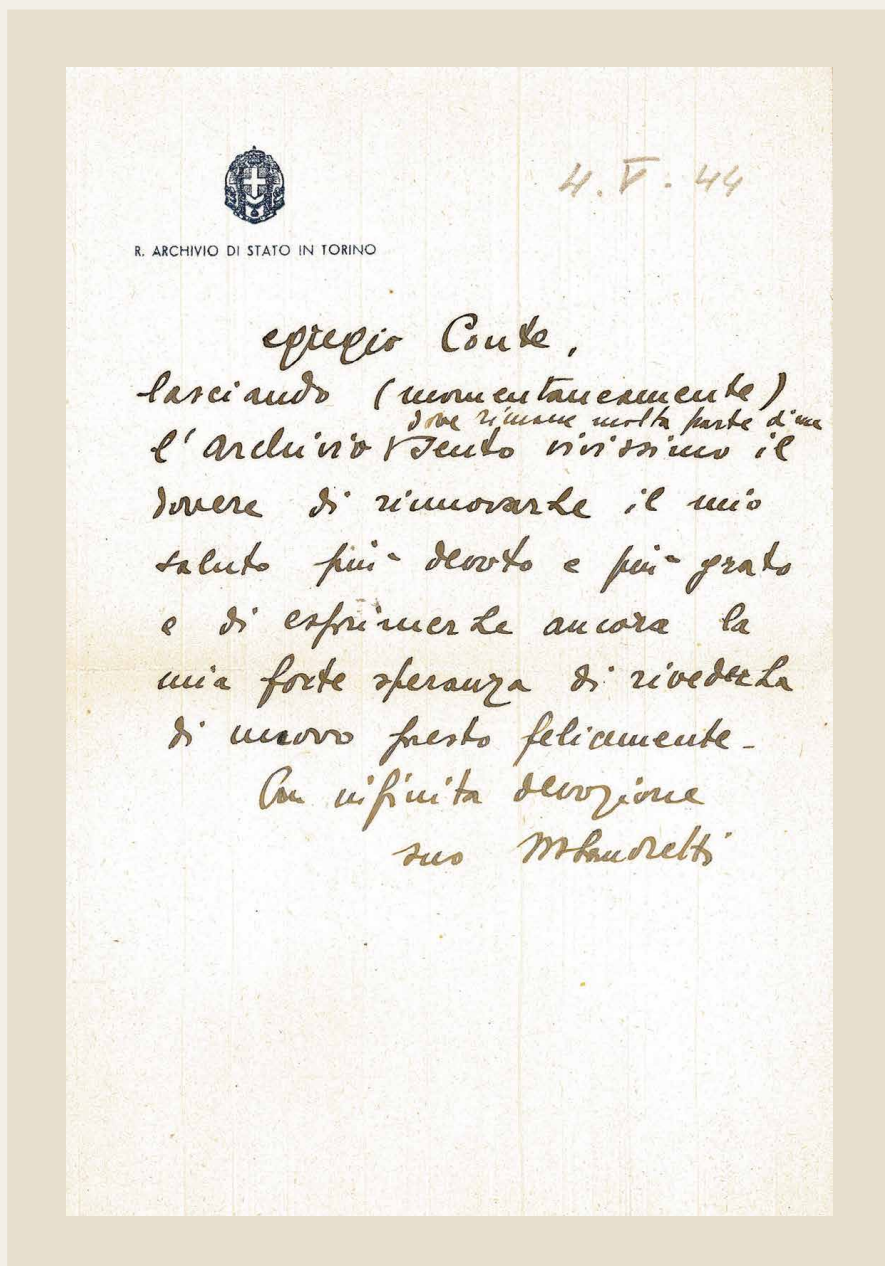 4. V. 44
R. ARCHIVIO DI STATO IN TORINO
egregio Conte,
lasciando (momentaneamente)
dove rimane molta parte di me
l'Archivio sento vivissimo il
dovere di rinnovarLe il mio
saluto più devoto e più grato
e di esprimerLe ancora la
mia forte speranza di rivederLa
di nuovo presto felicemente -
Con infinita devozione
suo